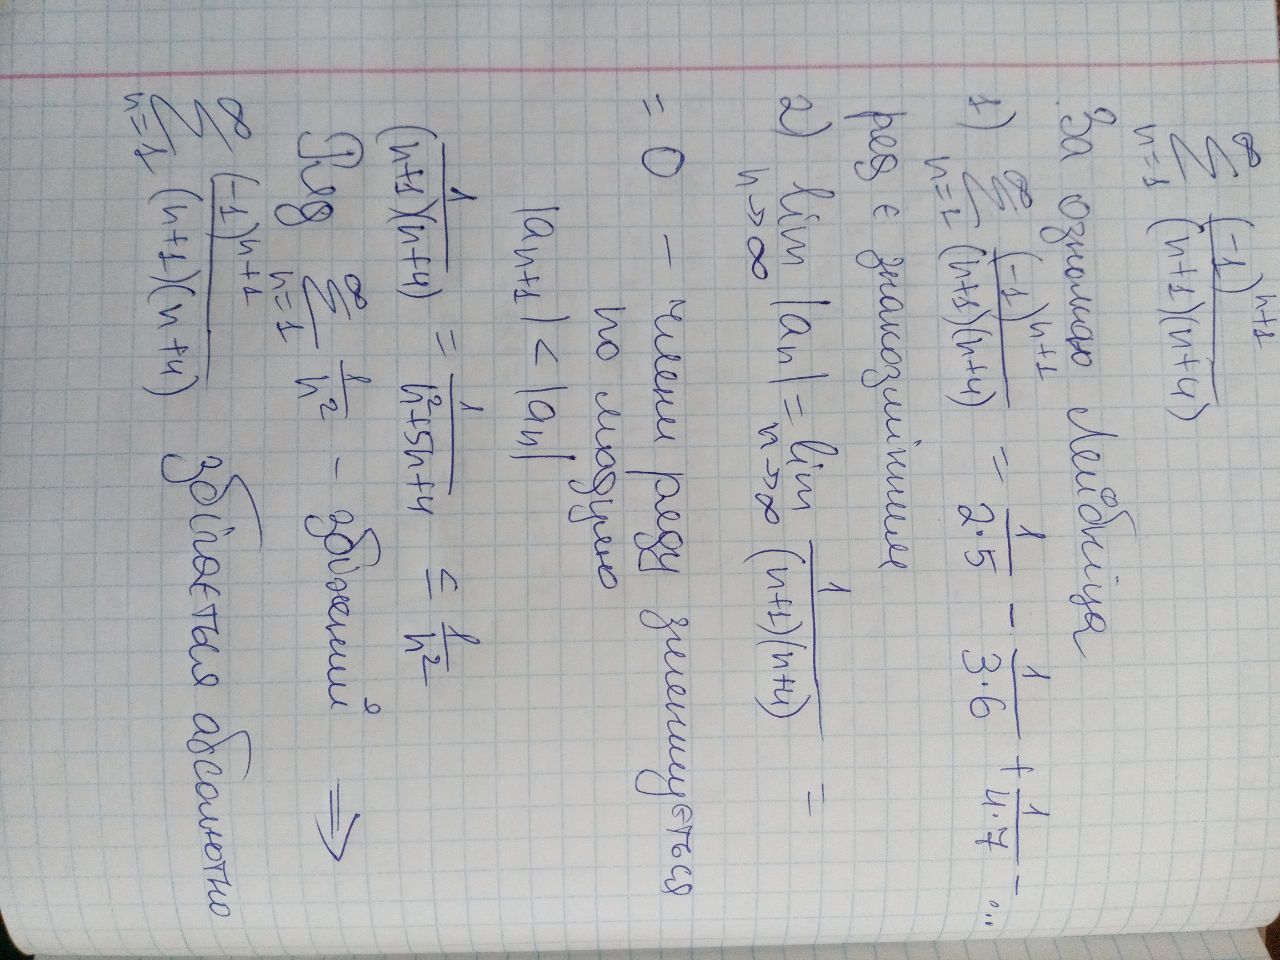 ∞∑n=1 (-1)^(n+1) / (n+1)(n+4)
За ознакою Лейбніца
1) ∞∑n=1 (-1)^(n+1) / (n+1)(n+4) = 1/2·5 - 1/3·6 + 1/4·7 - ...
ряд є знакозмінним
2) lim n→∞ |a_n| = lim n→∞ 1/(n+1)(n+4) =
= 0 – члени ряду зменшується
по модулю
|a_(n+1)| < |a_n|
1/(n+1)(n+4) = 1/n²+5n+4 ≤ 1/n²
Ряд ∞∑n=1 1/n² – збіжний ⇒
∞∑n=1 (-1)^(n+1) / (n+1)(n+4) збігається абсолютно